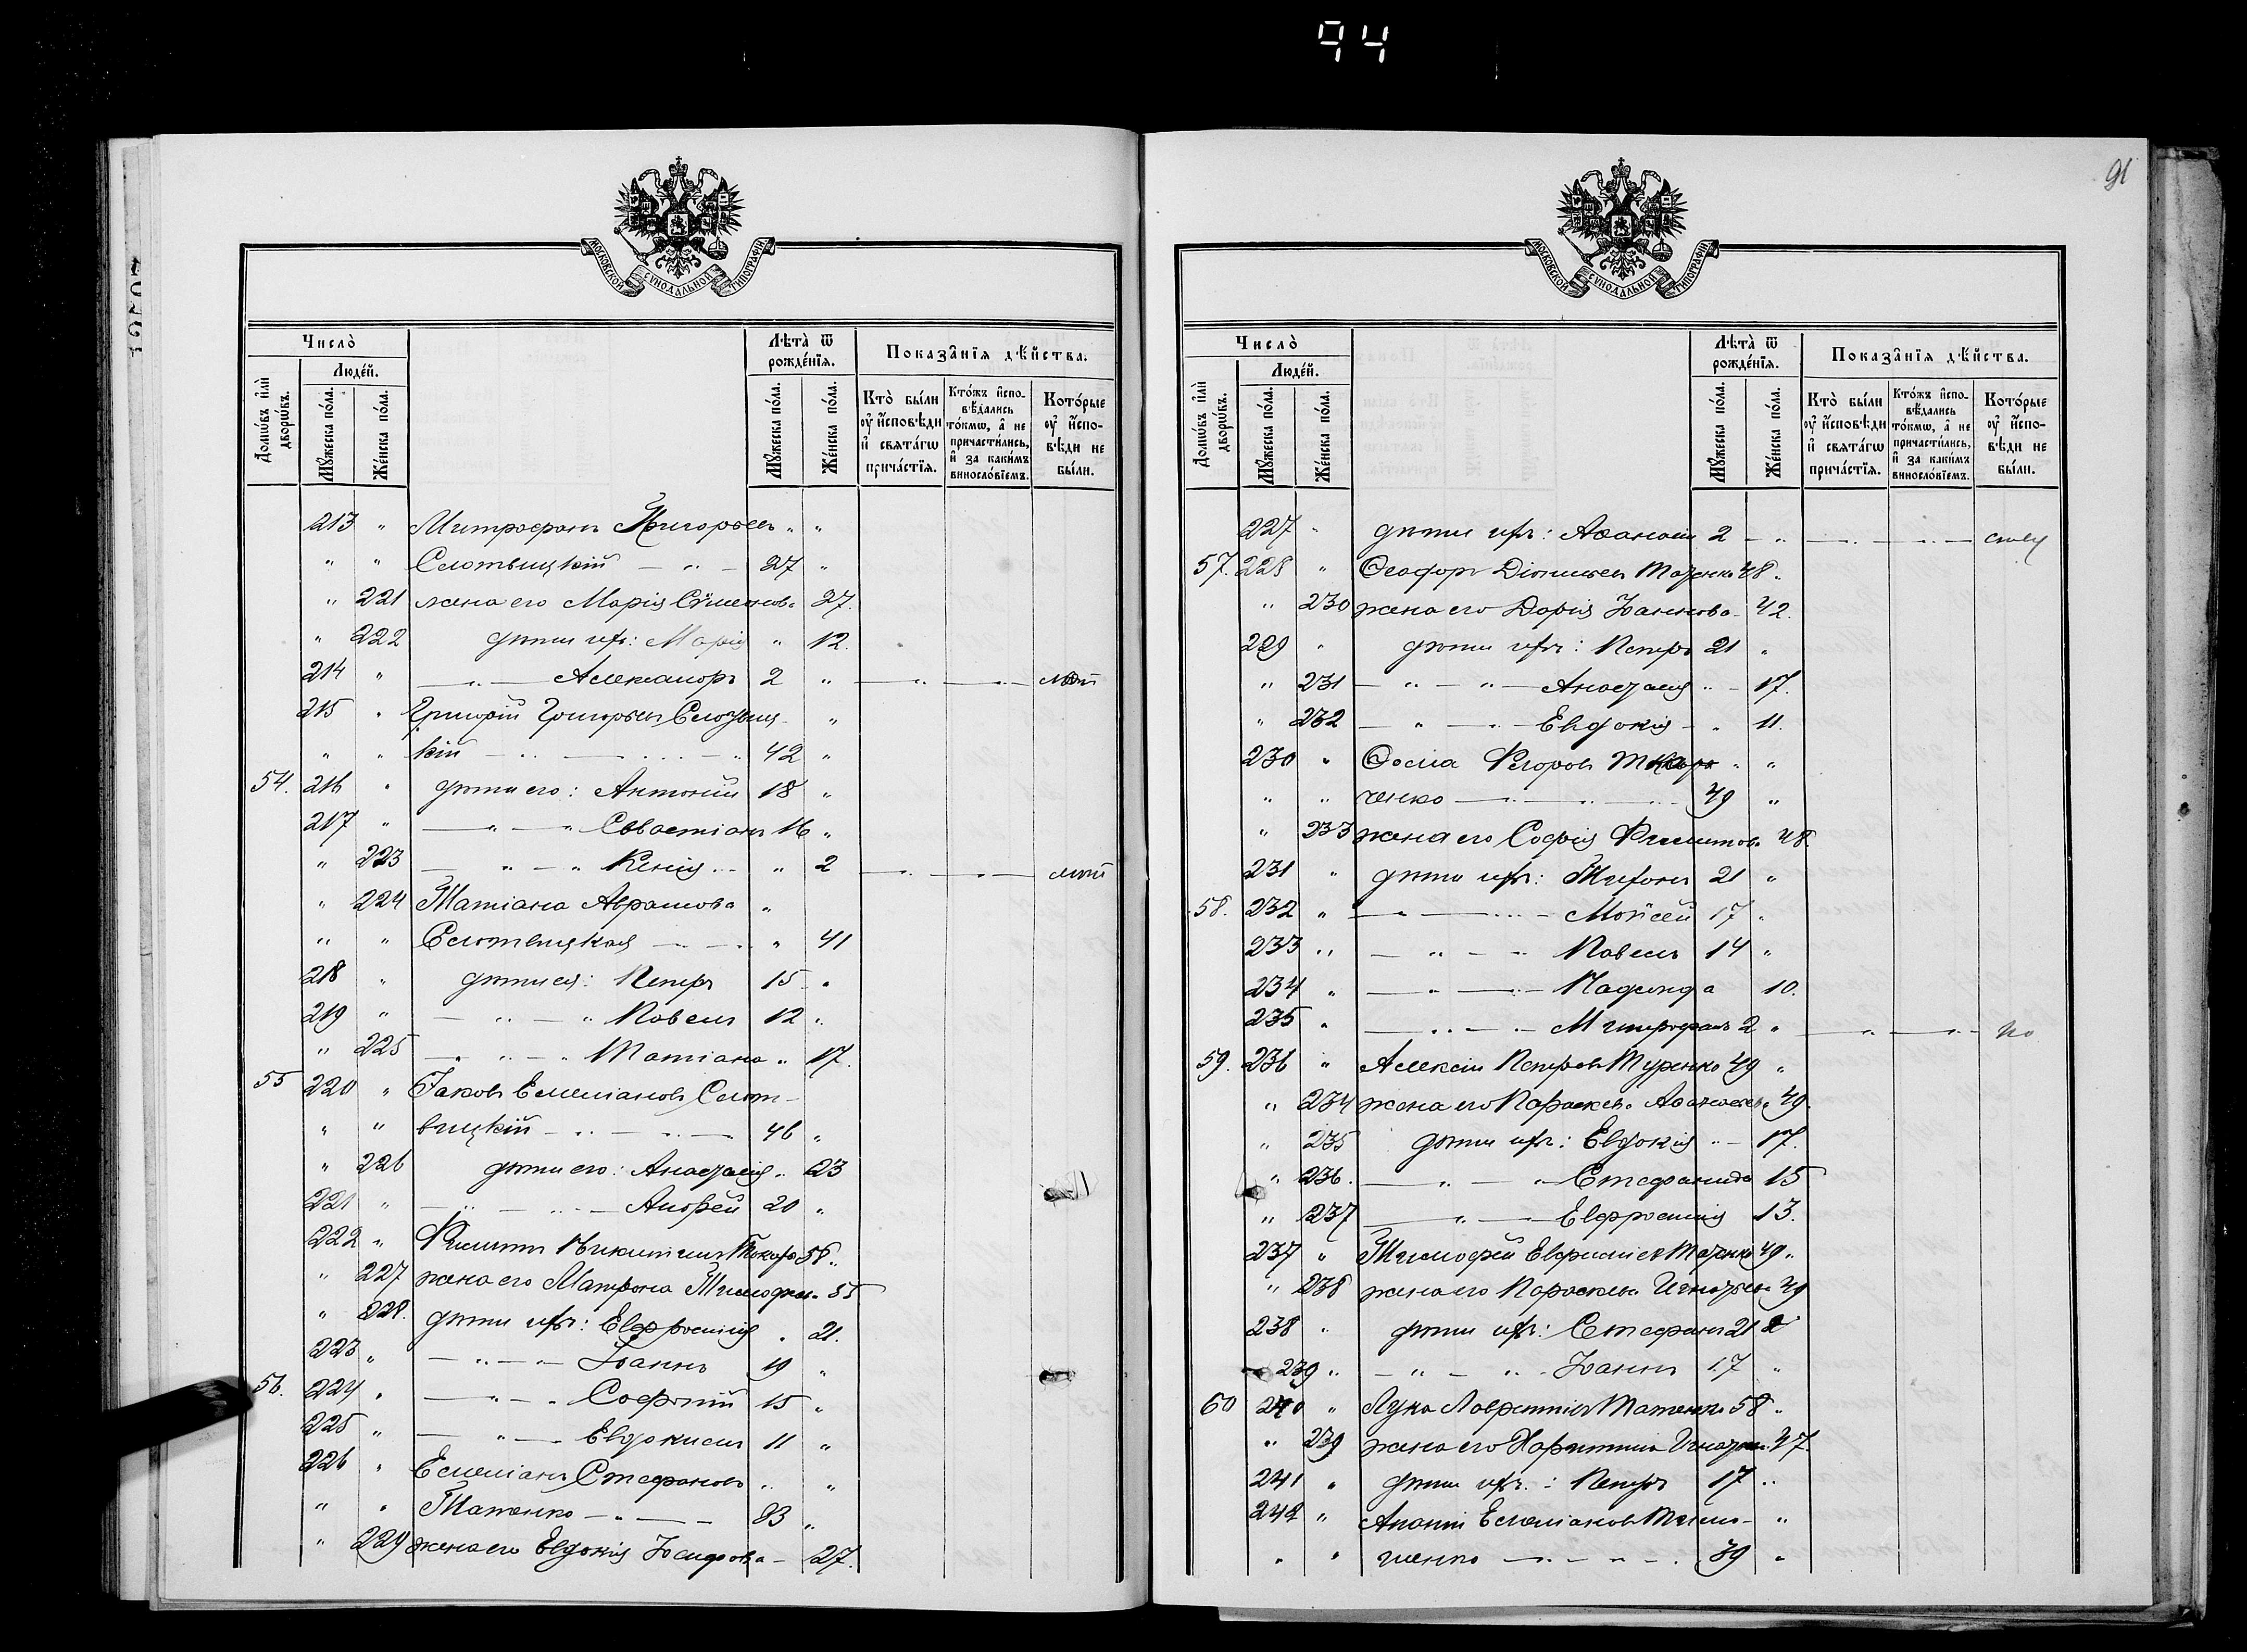 94
МОСКОВСКОЙ СѴНОДАЛЬНОЙ ТИПОГРАФІИ
Число̀
Домѡ́въ и҆лѝ дворѡ́въ.
Люде́й.
Мꙋ́жеска по́ла.
Же́нска по́ла.
Лѣта̀ ѿ рожде́нїѧ.
Мꙋ́жеска по́ла.
Же́нска по́ла.
Показа̑нїѧ дѣ́йства.
Кто̀ бы́ли оу҆ и҆́сповѣди и҆ свѧта́гѡ прича́стїѧ.
Кто́жъ и҆спо-вѣ́дались то́кмѡ, а҆ не причасти́лись, и҆ за каки́мъ винослóвїемъ.
Кото́рые оу҆ и҆спо-вѣди не бы́ли.
213 " Митрофанъ Григорьевъ " "
" " Слотвицкій 27 "
" 221 жена его Марія Сѵмеонов. 27.
" 222 дѣти ихъ: Марія " 12.
214 " Александръ 2 "
215 " Григорій Григорьевъ Слотвиц-
" " кій 42 "
54. 216 " дѣти его: Антоній 18 "
217 " Севастіанъ 16 "
" 223 Ксенія " 2
" 224 Татіана Аврамова "
" " Слотвицкая " 41
218 " дѣти ея: Петръ 15 "
219 " Павелъ 12 "
" 225 Татіана " 17.
55 220 " Іаковъ Емеліановъ Слот-
" " вицкій 46 "
" 226 дѣти его: Анастасія " 23
221 " Андрей 20 "
222 " Филиппъ Никитинъ 56 "
" 227 жена его Матрона Тимофеев. 55
" 228. дѣти ихъ: Евфросинія " 21.
223 " Іоаннъ 19 "
56. 224 " Софоній 15 "
225 " Евдокимъ 11 "
226 " Емеліанъ Стефановъ " "
" " Татенко 33 "
" 229 жена его Евдокія Іосифова 27.
91
МОСКОВСКОЙ СѴНОДАЛЬНОЙ ТИПОГРАФІИ
Число̀
Домѡ́въ и҆лѝ дворѡ́въ.
Люде́й.
Мꙋ́жеска по́ла.
Же́нска по́ла.
Лѣта̀ ѿ рожде́нїѧ.
Мꙋ́жеска по́ла.
Же́нска по́ла.
Показа̑нїѧ дѣ́йства.
Кто̀ бы́ли оу҆ и҆́сповѣди и҆ свѧта́гѡ прича́стїѧ.
Кто́жъ и҆спо-вѣ́дались то́кмѡ, а҆ не причасти́лись, и҆ за каки́мъ винослóвїемъ.
Кото́рые оу҆ и҆спо-вѣди не бы́ли.
227 " дѣти ихъ: Аѳанасій 2 "
57. 228 " Ѳеодоръ Діонисіевъ 48 "
" 230 жена его Дарія Іоаннова 42.
229 " дѣти ихъ: Петръ 21 "
" 231 Анастасія " 17.
" 232 Евдокія " 11.
230 " Ѳома " "
" " ченко 49 "
" 233 жена его Софія Филиппов. 48.
231 " дѣти ихъ: Тихонъ 21 "
58. 232 " Моѵсей 17 "
233 " Павелъ 14 "
234 " 10.
235 " Митрофанъ 2 "
59. 236 " Алексій Петровъ Туренко 49 "
" 234 жена его Параскева Аѳанасіев. 49.
" 235 дѣти ихъ: Евдокія " 17.
" 236. Стефанида 15
" 237 Евфросинія 13.
237 " Тимофей 49 "
" 238 жена его Параскева Игнатьев. 49
238 " дѣти ихъ: Стефанъ 21
239 " Іоаннъ 17 "
60 240 " Лука Лаврентіевъ Татенко 58 "
" 239 жена его Харитина Игнатіев. 47.
241 " дѣти ихъ: Петръ 17 "
242 " Ананій Емеліановъ "
" " шенко 39 "